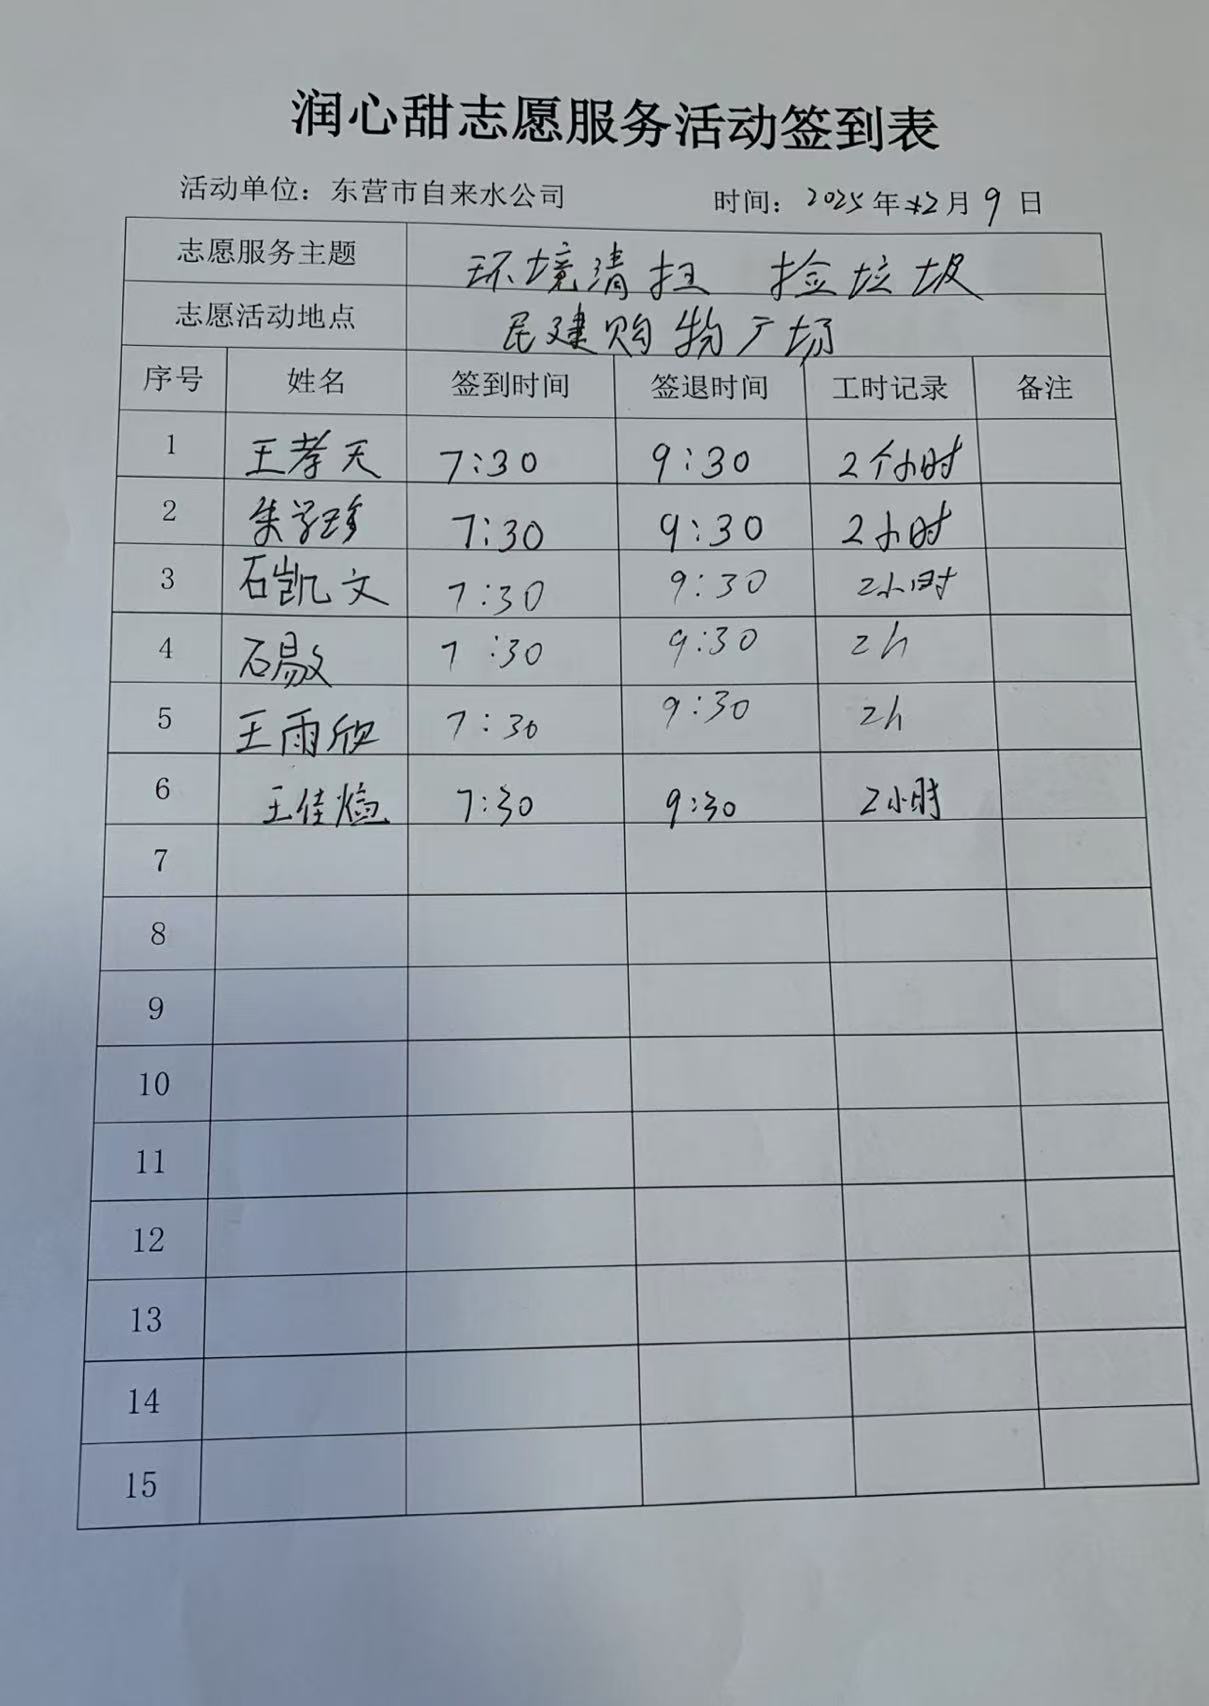 润心甜志愿服务活动签到表
活动单位：东营市自来水公司 时间：2025年12月9日
志愿服务主题 环境清扫 捡垃圾
志愿活动地点 民建购物广场
序号 姓名 签到时间 签退时间 工时记录 备注
1 王孝天 7:30 9:30 2个小时
2 朱学珍 7:30 9:30 2小时
3 石凯文 7:30 9:30 2小时
4 7:30 9:30 2h
5 王雨欣 7:30 9:30 2h
6 王佳 7:30 9:30 2小时
7
8
9
10
11
12
13
14
15